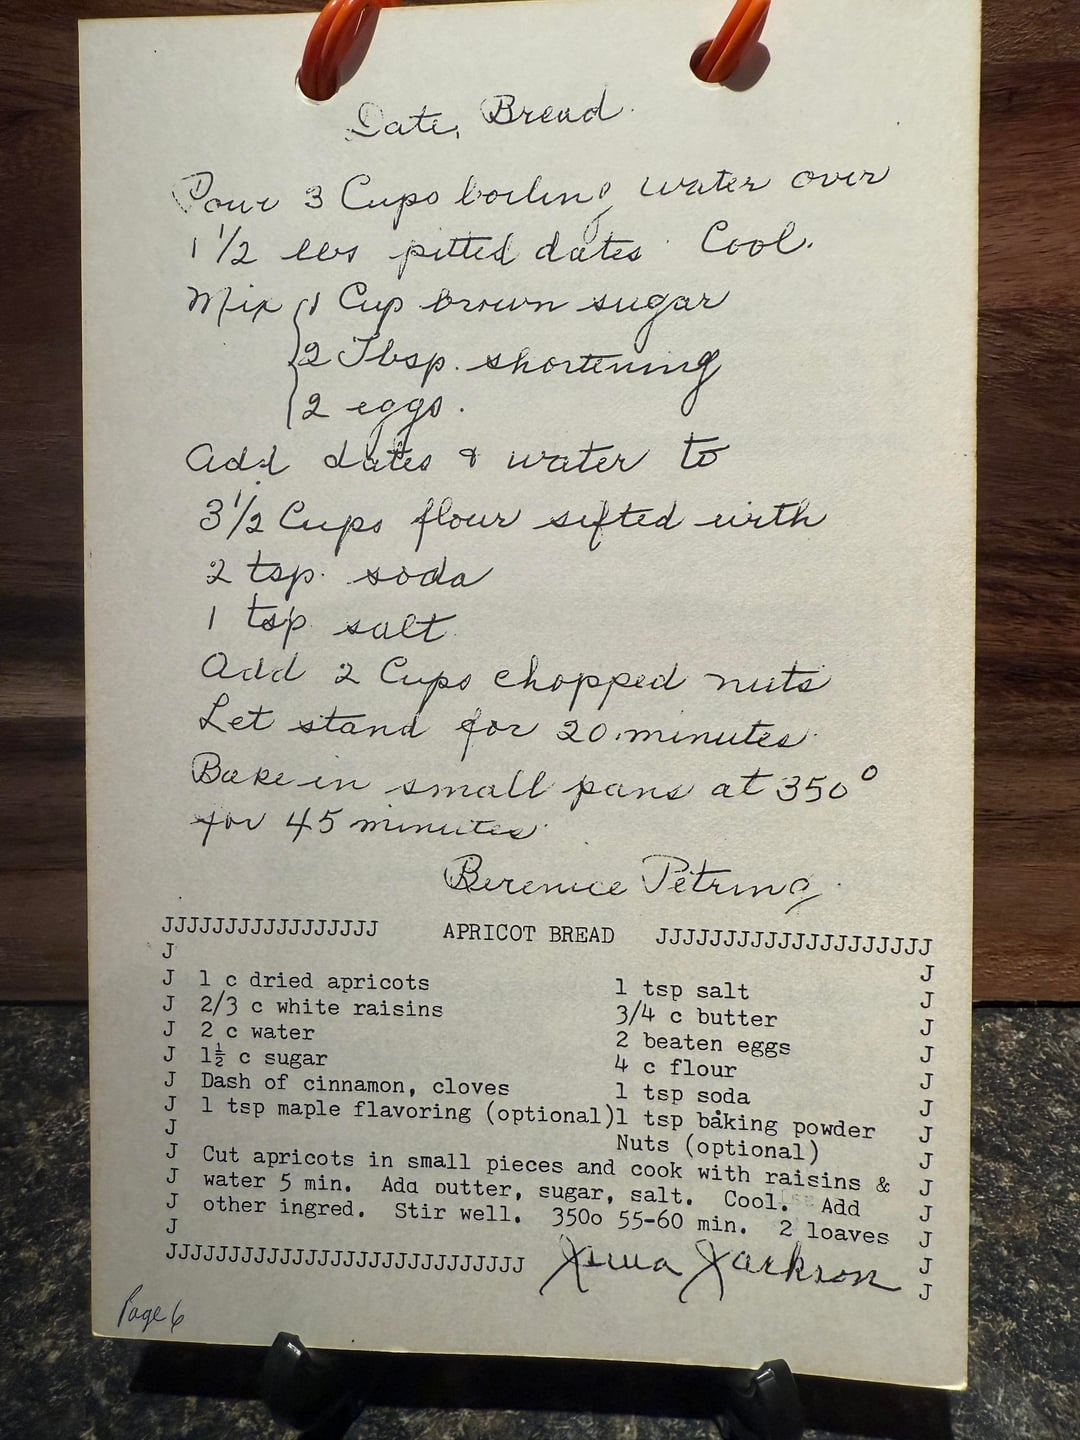 Date Bread
Pour 3 Cups boiling water over
1 1/2 lbs pitted dates Cool.
Mix 1 Cup brown sugar
2 Tbsp. shortening
2 eggs.
Add dates & water to
3 1/2 Cups flour sifted with
2 tsp. soda
1 tsp salt
Add 2 Cups chopped nuts
Let stand for 20 minutes
Bake in small pans at 350°
for 45 minutes
Berenice Petring
JJJJJJJJJJJJJJJJJ APRICOT BREAD JJJJJJJJJJJJJJJJJJJJ
J
J 1 c dried apricots 1 tsp salt J
J 2/3 c white raisins 3/4 c butter J
J 2 c water 2 beaten eggs J
J 1½ c sugar 4 c flour J
J Dash of cinnamon, cloves 1 tsp soda J
J 1 tsp maple flavoring (optional) 1 tsp baking powder J
J Nuts (optional) J
J Cut apricots in small pieces and cook with raisins & J
J water 5 min. Add butter, sugar, salt. Cool. Add J
J other ingred. Stir well. 350o 55-60 min. 2 loaves J
J J
JJJJJJJJJJJJJJJJJJJJJJJJJJJJ Jackson J
Page 6